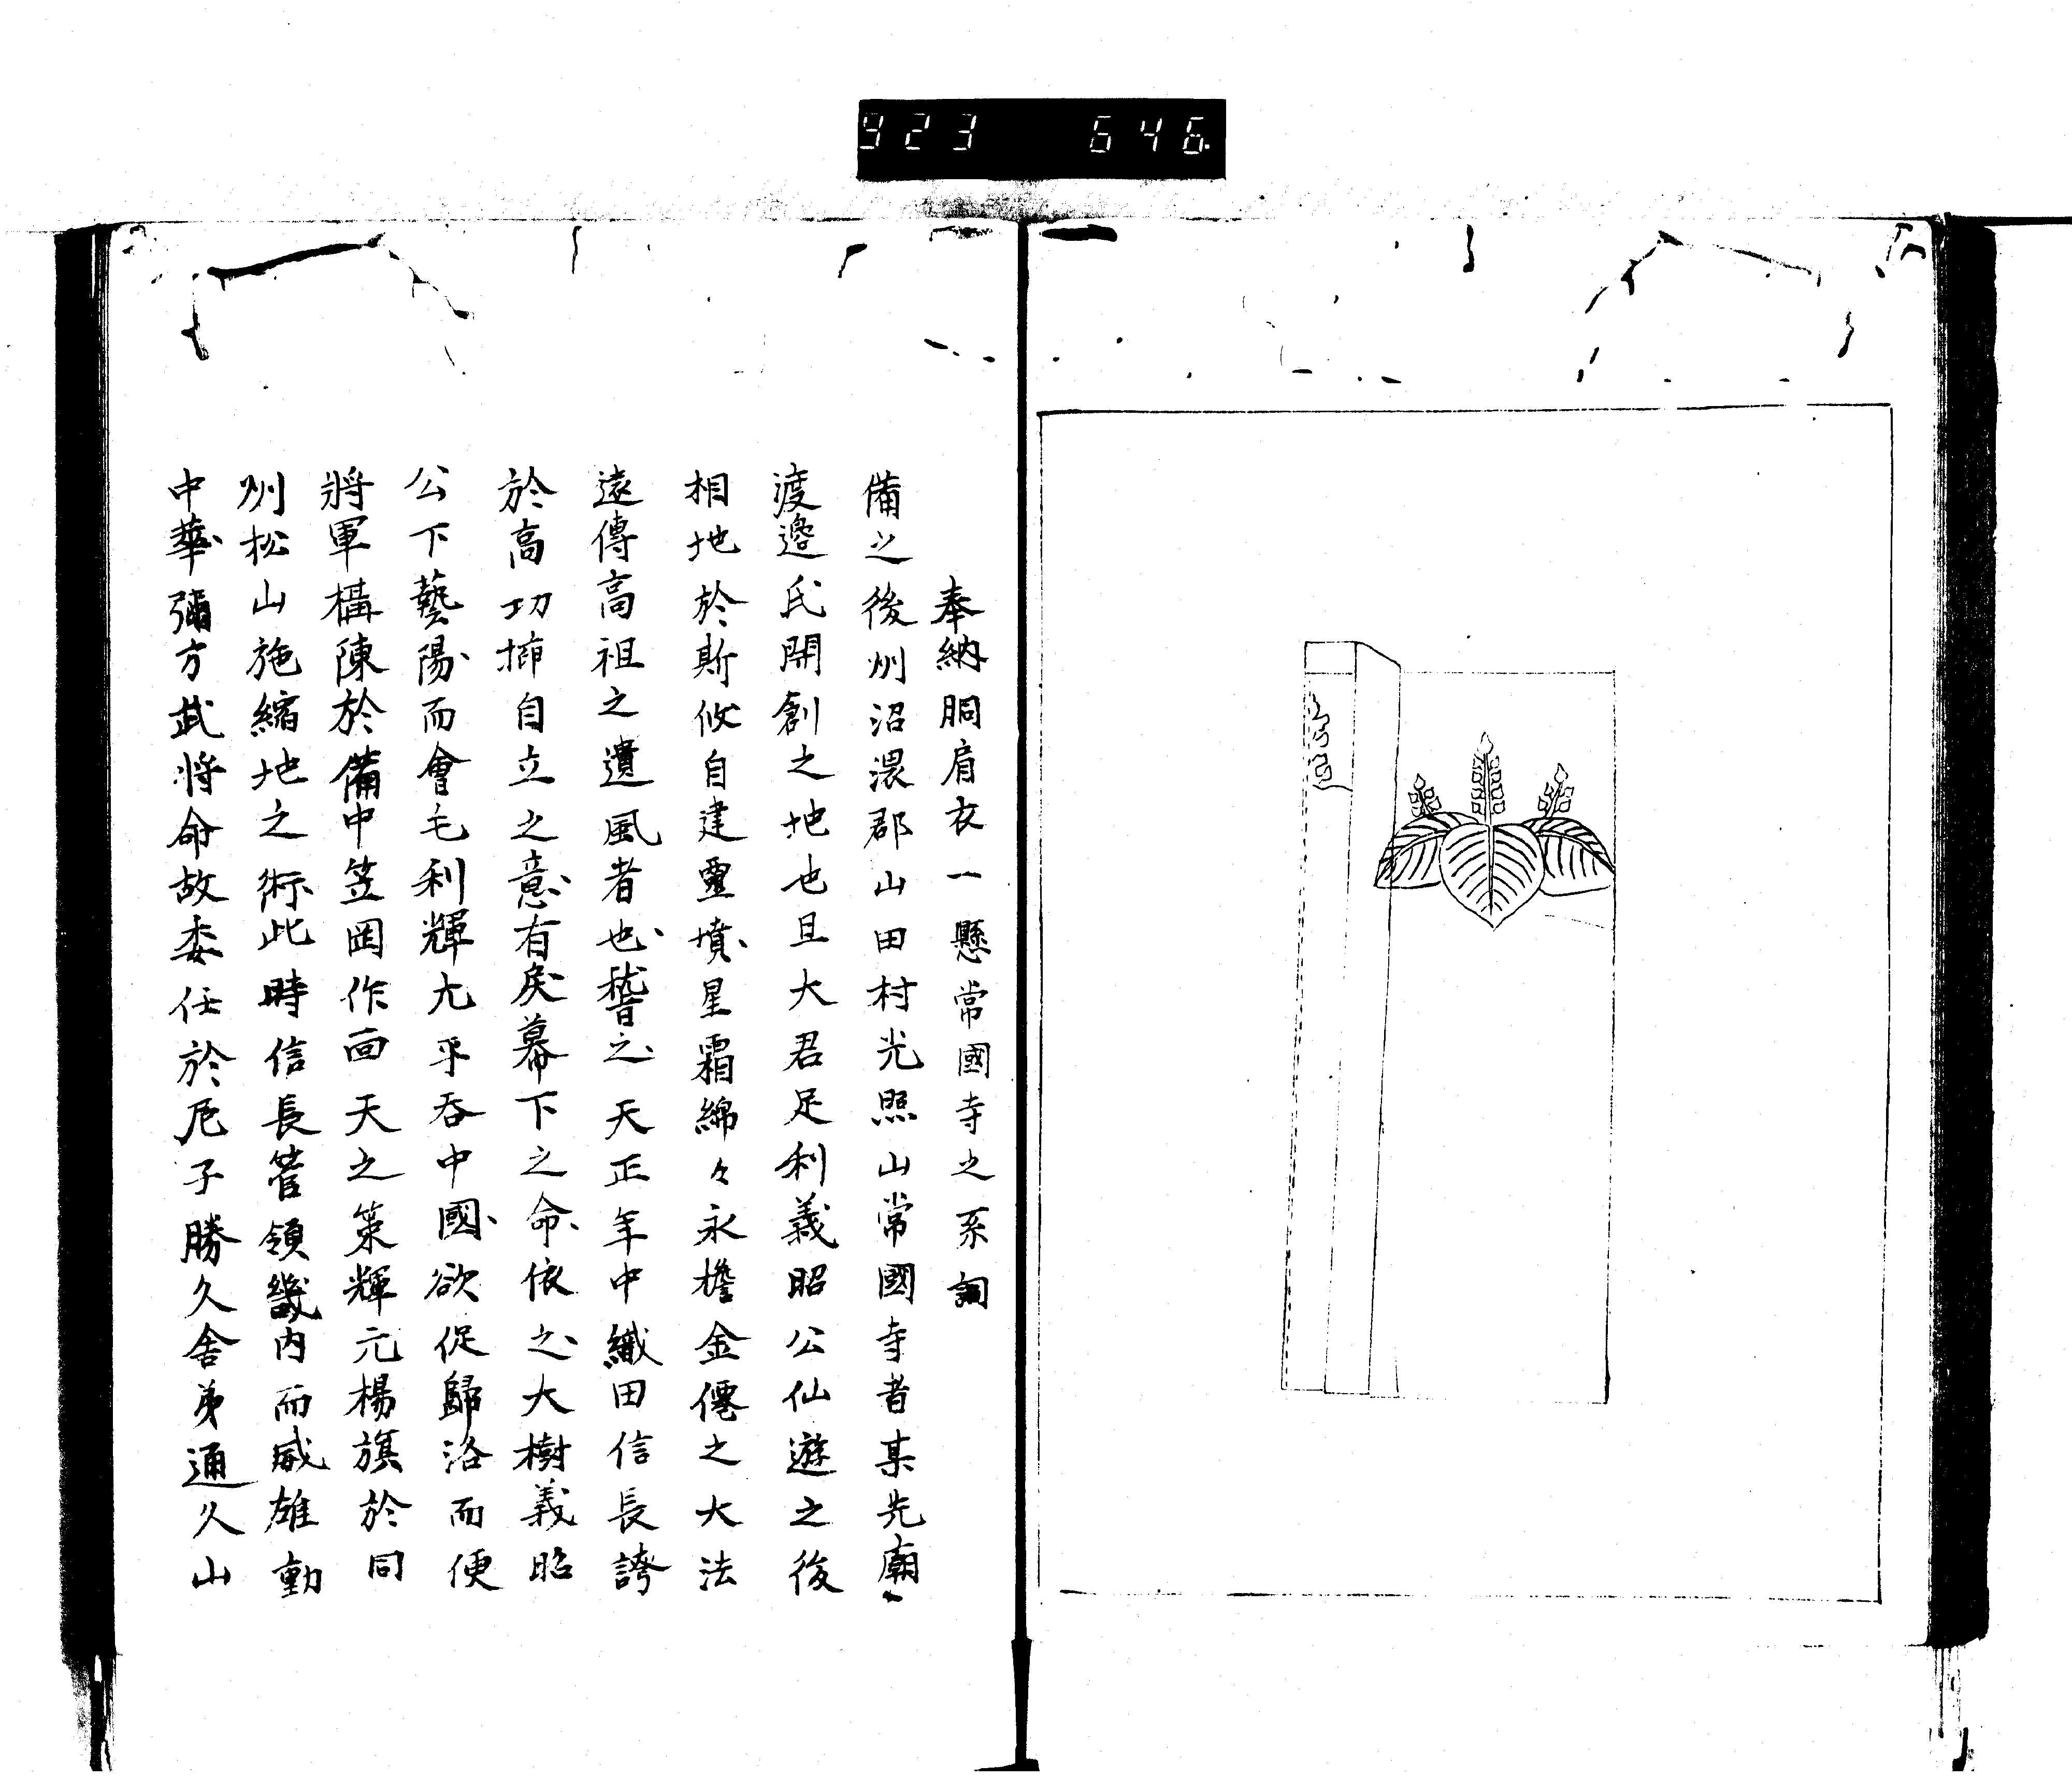 923 646
奉納胴肩衣一懸常國寺之系詞
備之後州沼濃郡山田村光照山常國寺者某先廟
渡邊氏開創之地也且大君足利義昭公仙遊之後
相地於斯攸自建靈墳星霜綿々永檐金僊之大法
遠傳高祖之遺風者也稽之天正年中織田信長誇
於高功擲自立之意有戾幕下之命依之大樹義昭
公下藝陽而會毛利輝元平吞中國欲促歸洛而便
將軍構陳於備中笠岡作回天之策輝元楊旗於同
州松山施縮地之術此時信長管領畿內而威雄動
中華彌方武将命故委任於尼子勝久舍弟通久山